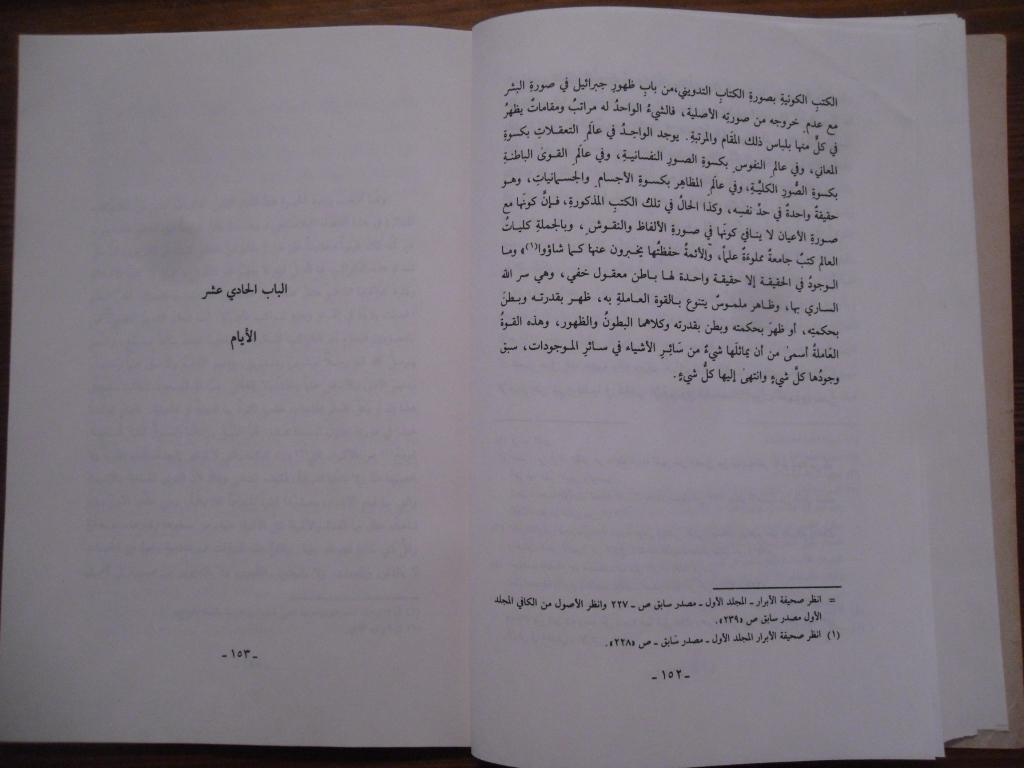 الكتبِ الكونيةِ بصورةِ الكتابِ التدويني،من بابِ ظهورِ جبرائيل في صورةِ البشر
مع عدمِ خروجه من صورتِه الأصلية، فالشيءُ الواحدُ له مراتبُ ومقاماتٌ يظهرُ
في كلٍّ منها بلباس ذلك المقام والمرتبةِ. يوجد الواحِدُ في عالَمِ التعقلاتِ بكسوةِ
المعاني، وفي عالمِ النفوس بكسوةِ الصورِ النفسانيةِ، وفي عالَمِ القوىٰ الباطنةِ
بكسوةِ الصُّورِ الكليَّةِ، وفي عالَمِ المظاهِر بكسوةِ الأجسامِ والجسمانياتِ، وهو
حقيقةٌ واحدةٌ في حدِّ نفسِه، وكذا الحالُ في تلك الكتبِ المذكورةِ، فإنَّ كونَها مع
صورةِ الأعيان لا ينافي كونَها في صورةِ الألفاظ والنقوش، وبالجملةِ كلياتُ
العالم كتبٌ جامعةٌ مملوءةٌ علماً، والأئمةُ حفظتُها يخبرون عنها كما شاؤوا(١)» وما
الوجودُ في الحقيقةِ إلا حقيقةٌ واحدة لها باطن معقول خفي، وهي سر الله
الساري بها، وظاهر ملموسٌ يتنوع بالقوة العاملةِ به، ظهر بقدرته وبطنَ
بحكمتِه، أو ظهرَ بحكمته وبطن بقدرته وكلاهما البطونُ والظهور، وهذه القوةُ
العَاملةُ أسمىٰ من أن يماثلَها شيءٌ من سَائِرِ الأشياء في سائرِ الموجودات، سبق
وجودُها كلَّ شيءٍ وانتهىٰ إليها كلُّ شيءٍ.
= انظر صحيفة الأبرار - المجلد الأول - مصدر سابق ص - ٢٢٧ وانظر الأصول من الكافي المجلد
الأول مصدر سابق ص «٢٣٩».
(١) انظر صحيفة الأبرار المجلد الأول - مصدر سابق - ص «٢٢٨».
- ١٥٢ -
الباب الحادي عشر
الأيام
- ١٥٣ -